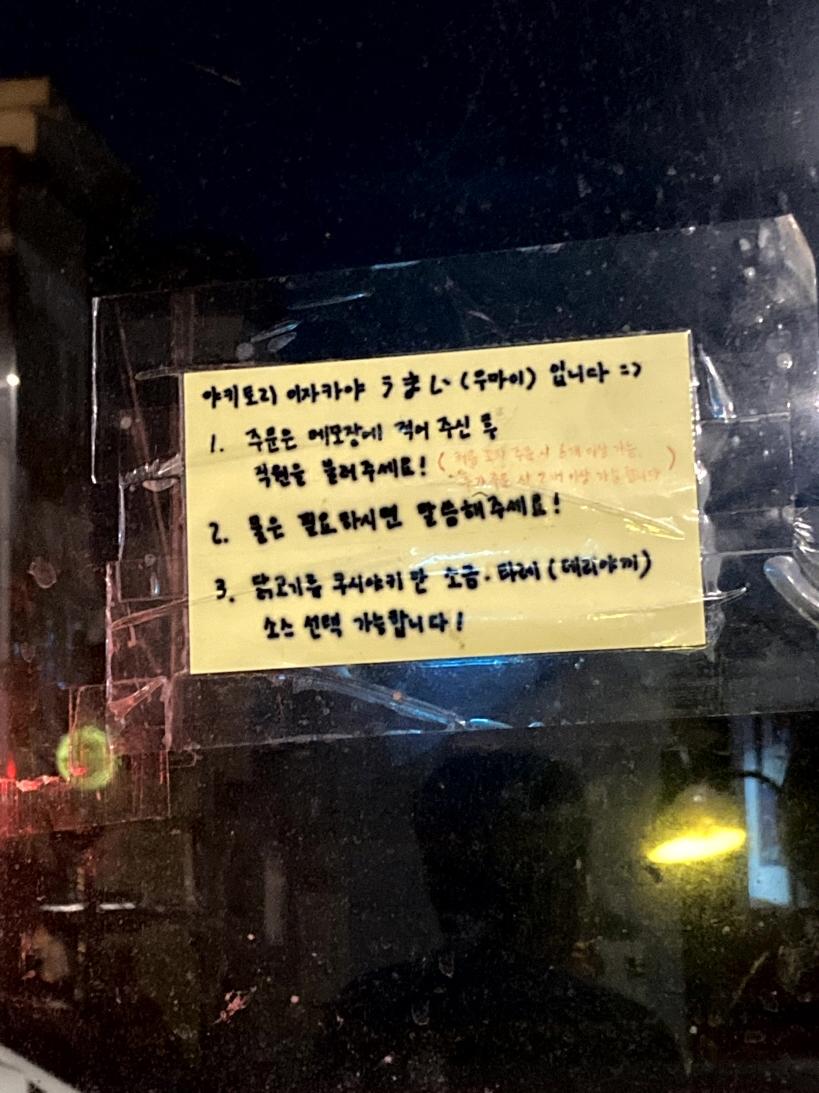 야키토리 이자카야 うまい (우마이) 입니다 =>
1. 주문은 메모장에 적어 주신 후
직원을 불러주세요! (처음 꼬치 주문 시 6개 이상 가능,
추가 주문 시 2개 이상 가능합니다)
2. 물은 필요하시면 말씀해주세요!
3. 닭고기류 쿠시야키 만 소금·타레 (데리야끼)
소스 선택 가능합니다!